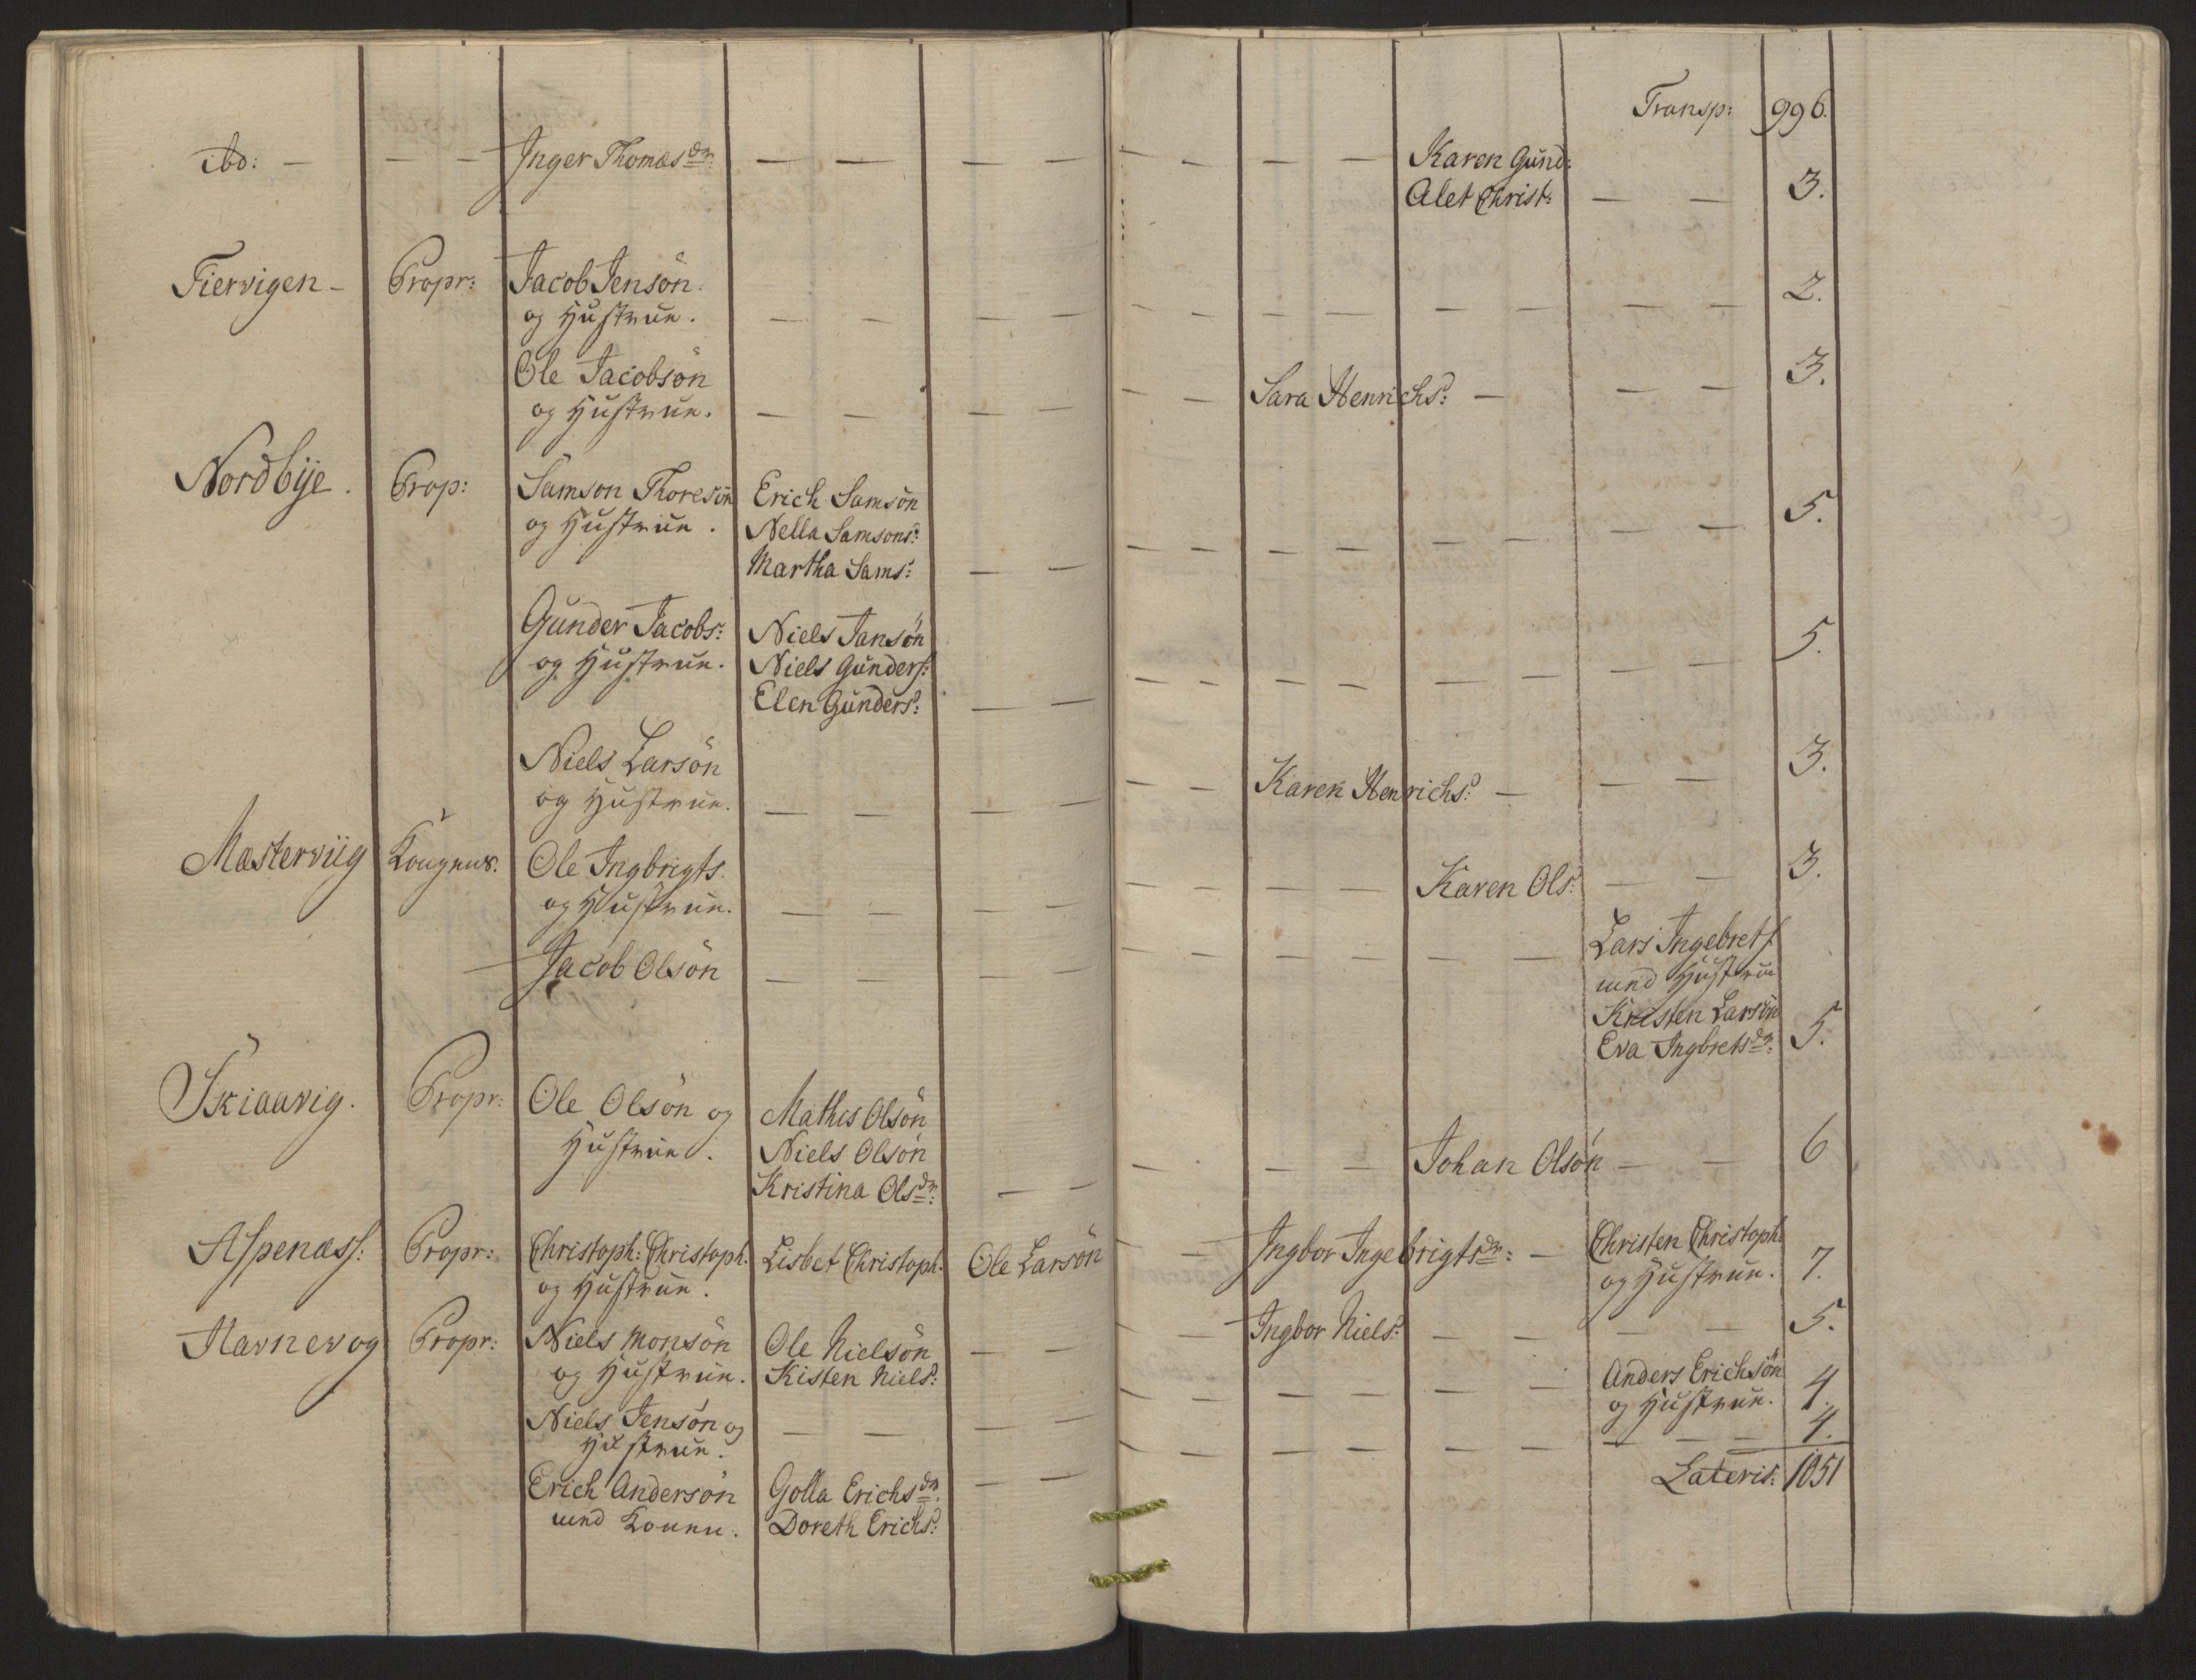 Transp: 996.
ibd: — — — Inger Thomæsdr: — — — — — — — — Karen Gund:
Alet Christ: — — 3.
Fiervigen — Propr: Jacob Jensön.
og Hustrue. — — — — — — — — — — — — 2.
Ole Jacobsön
og Hustrue. — — — — — — Sara Henrichsd: — — — 3.
Nordbÿe. Prop: Samson Thoresön Erich Samsön
og Hustrue. Nella Samsonsd:
Martha Sams: — — — — — — — — — — 5.
Gunder Jacobs: Niels Jansön
og Hustrue. Niels Gunders:
Elen Gundersd: — — — — — — — — — — 5.
Niels Larsön
og Hustrue. — — — — — — Karen Henrichsd: — — — 3.
Mastervüg Kongens. Ole Ingbrigts.
og Hustrue. — — — — — — — — Karen Olsd: — — 3.
— Jacob Olsön — — — — — — — — — — Lars Ingebrets.
med Hustrue
Kristen Larsön
Eva Ingbretsdr: 5.
Skiaavig. Propr: Ole Olsön og Mathes Olsön
Hustrue. Niels Olsön
Kristina Olsdr: — — — — — Johan Olsön — — 6
Aspenæss: Propr: Christoph: Christoph. Lisbet Christoph. Ole Larsön — — Ingbor Ingebrigtsdr: — Christen Christoph:
og Hustrue. og Hustrue. 7.
Havnevog Propr: Niels Monsön Ole Nielsön — — — — Ingbor Nielsd: — — — — 5.
og Hustrue. Kisten Nielsd:
Niels Jensön og — — — — — — — — — — Anders Erichsön
Hustrue. og Hustrue. 4.
Erich Andersön Golla Erichsdr. — — — — — — — — — — — 4.
med Konen. Doreth Erichsd:
Lateris: 1051